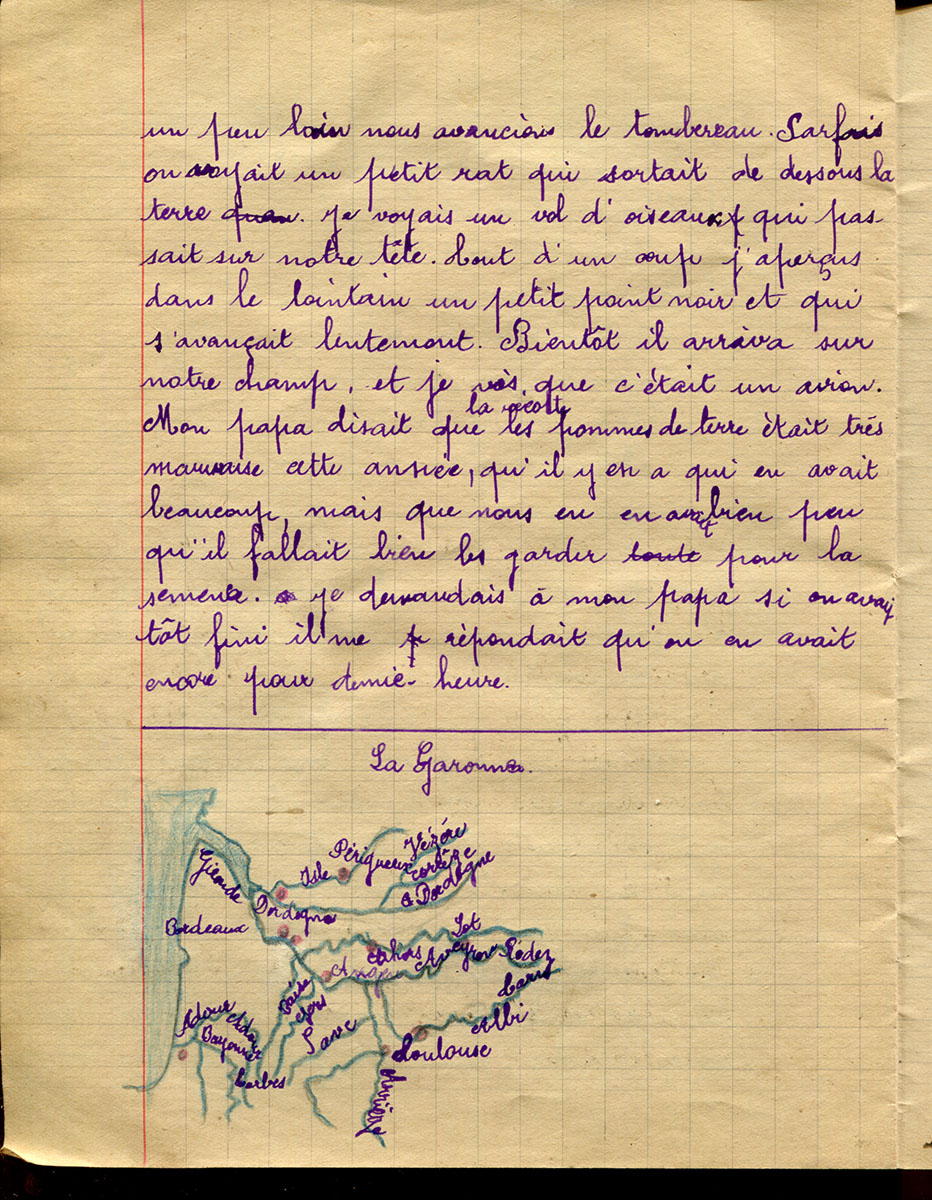 un peu loin nous avancions le tombereau. Parfois
on voyait un petit rat qui sortait de dessous la
terre quan. je voyais un vol d'oiseaux qui pas-
sait sur notre tête. Tout d'un coup j'aperçus
dans le lointain un petit point noir et qui
s'avançait lentement. Bientôt il arriva sur
notre champ, et je vis, que c'était un avion.
la récolte
Mon papa disait que les pommes de terre était très
mauvaise cette année, qu'il y en a qui en avait
beaucoup, mais que nous en en avait bien peu
qu'il fallait bien les garder toute pour la
semence. je demandais à mon papa si on avait
tôt fini il me répondait qu'on en avait
encore pour demie-heure.
La Garonne.
Gironde
Isle
Périgueux
Vézère
Corrèze
Dordogne
Dordogne
Bordeaux
Lot
Cahors
Aveyron
Rodez
Agen
Tarn
Baïse
Gers
Save
Albi
Adour
Adour
Bayonne
Toulouse
Tarbes
Arrière